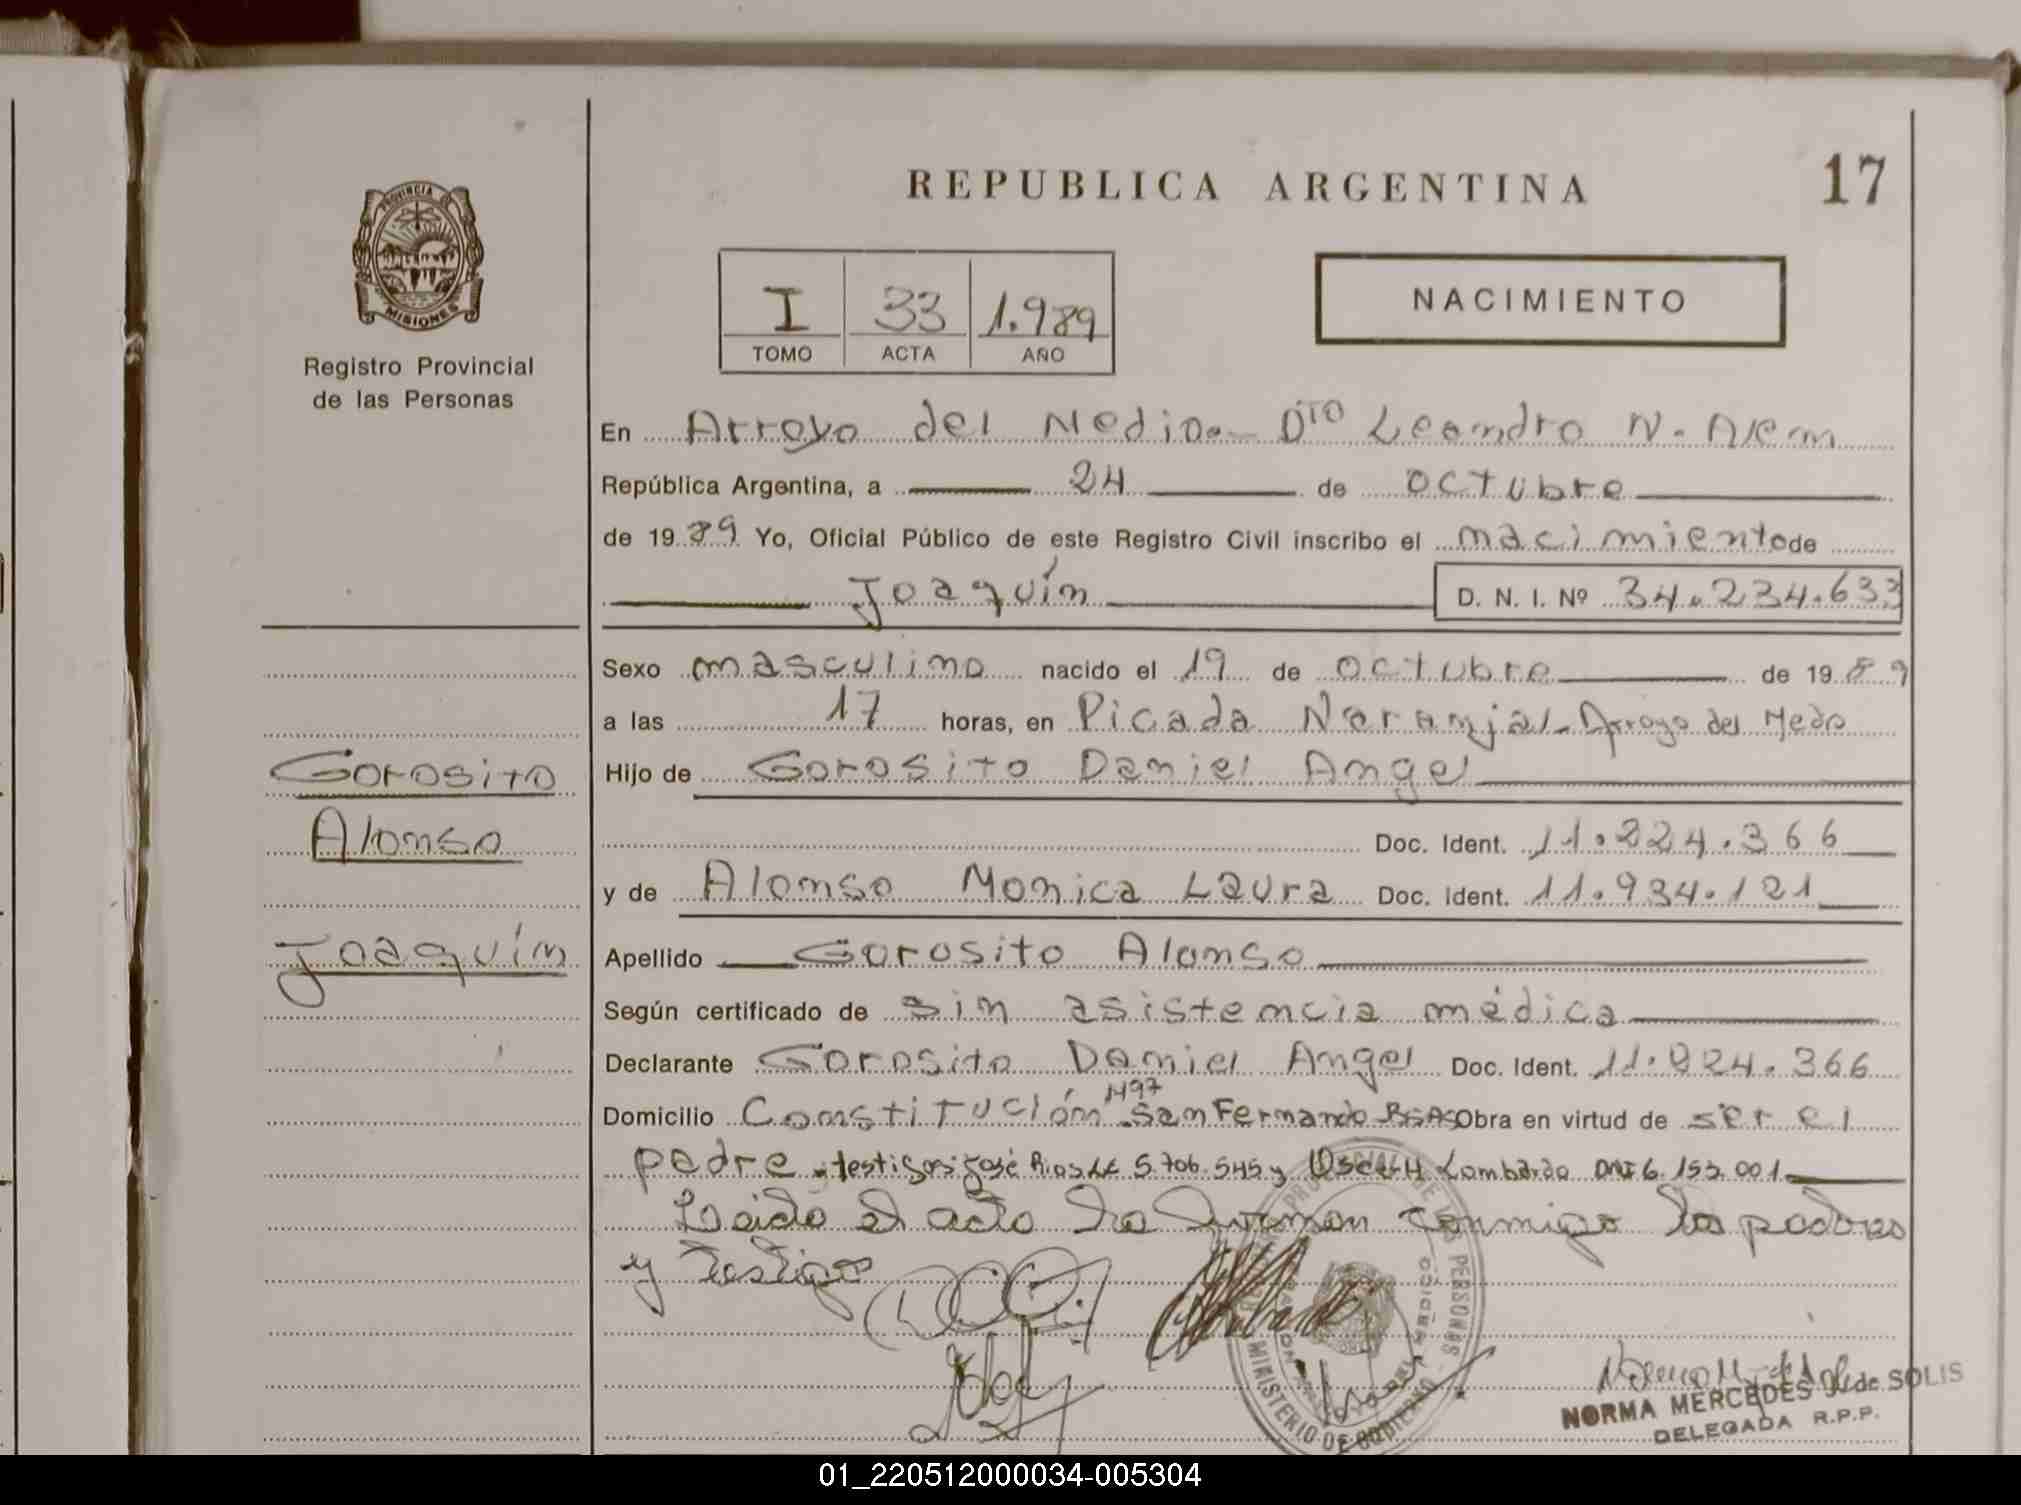 REPUBLICA ARGENTINA
17
PROVINCIA
MISIONES
Registro Provincial
de las Personas
I 33 1.989
TOMO ACTA AÑO
NACIMIENTO
En Arroyo del Medio.- Dto Leandro N. Alem
República Argentina, a 24 de octubre
de 1989 Yo, Oficial Público de este Registro Civil inscribo el nacimiento de
Joaquín D. N. I. Nº 34.234.633
Sexo masculino nacido el 19 de octubre de 1989
a las 17 horas, en Picada Naranjal - Arroyo del Medio
Gorosito
Hijo de Gorosito Daniel Angel
Alonso
Doc. Ident. 11.224.366
y de Alonso Monica Laura Doc. Ident. 11.934.121
Joaquín
Apellido Gorosito Alonso
Según certificado de sin asistencia médica
Declarante Gorosito Daniel Angel Doc. Ident. 11.224.366
Domicilio Constitución 1497 San Fernando Bs As Obra en virtud de ser el
padre. testigos José Rios LE 5.706.545 y Lombardo DNI 6.153.001
Leido el acto lo firman conmigo los padres
y testigos
MINISTERIO DE GOBIERNO
PERSONAS
NORMA MERCEDES de SOLIS
DELEGADA R.P.P.
01_220512000034-005304